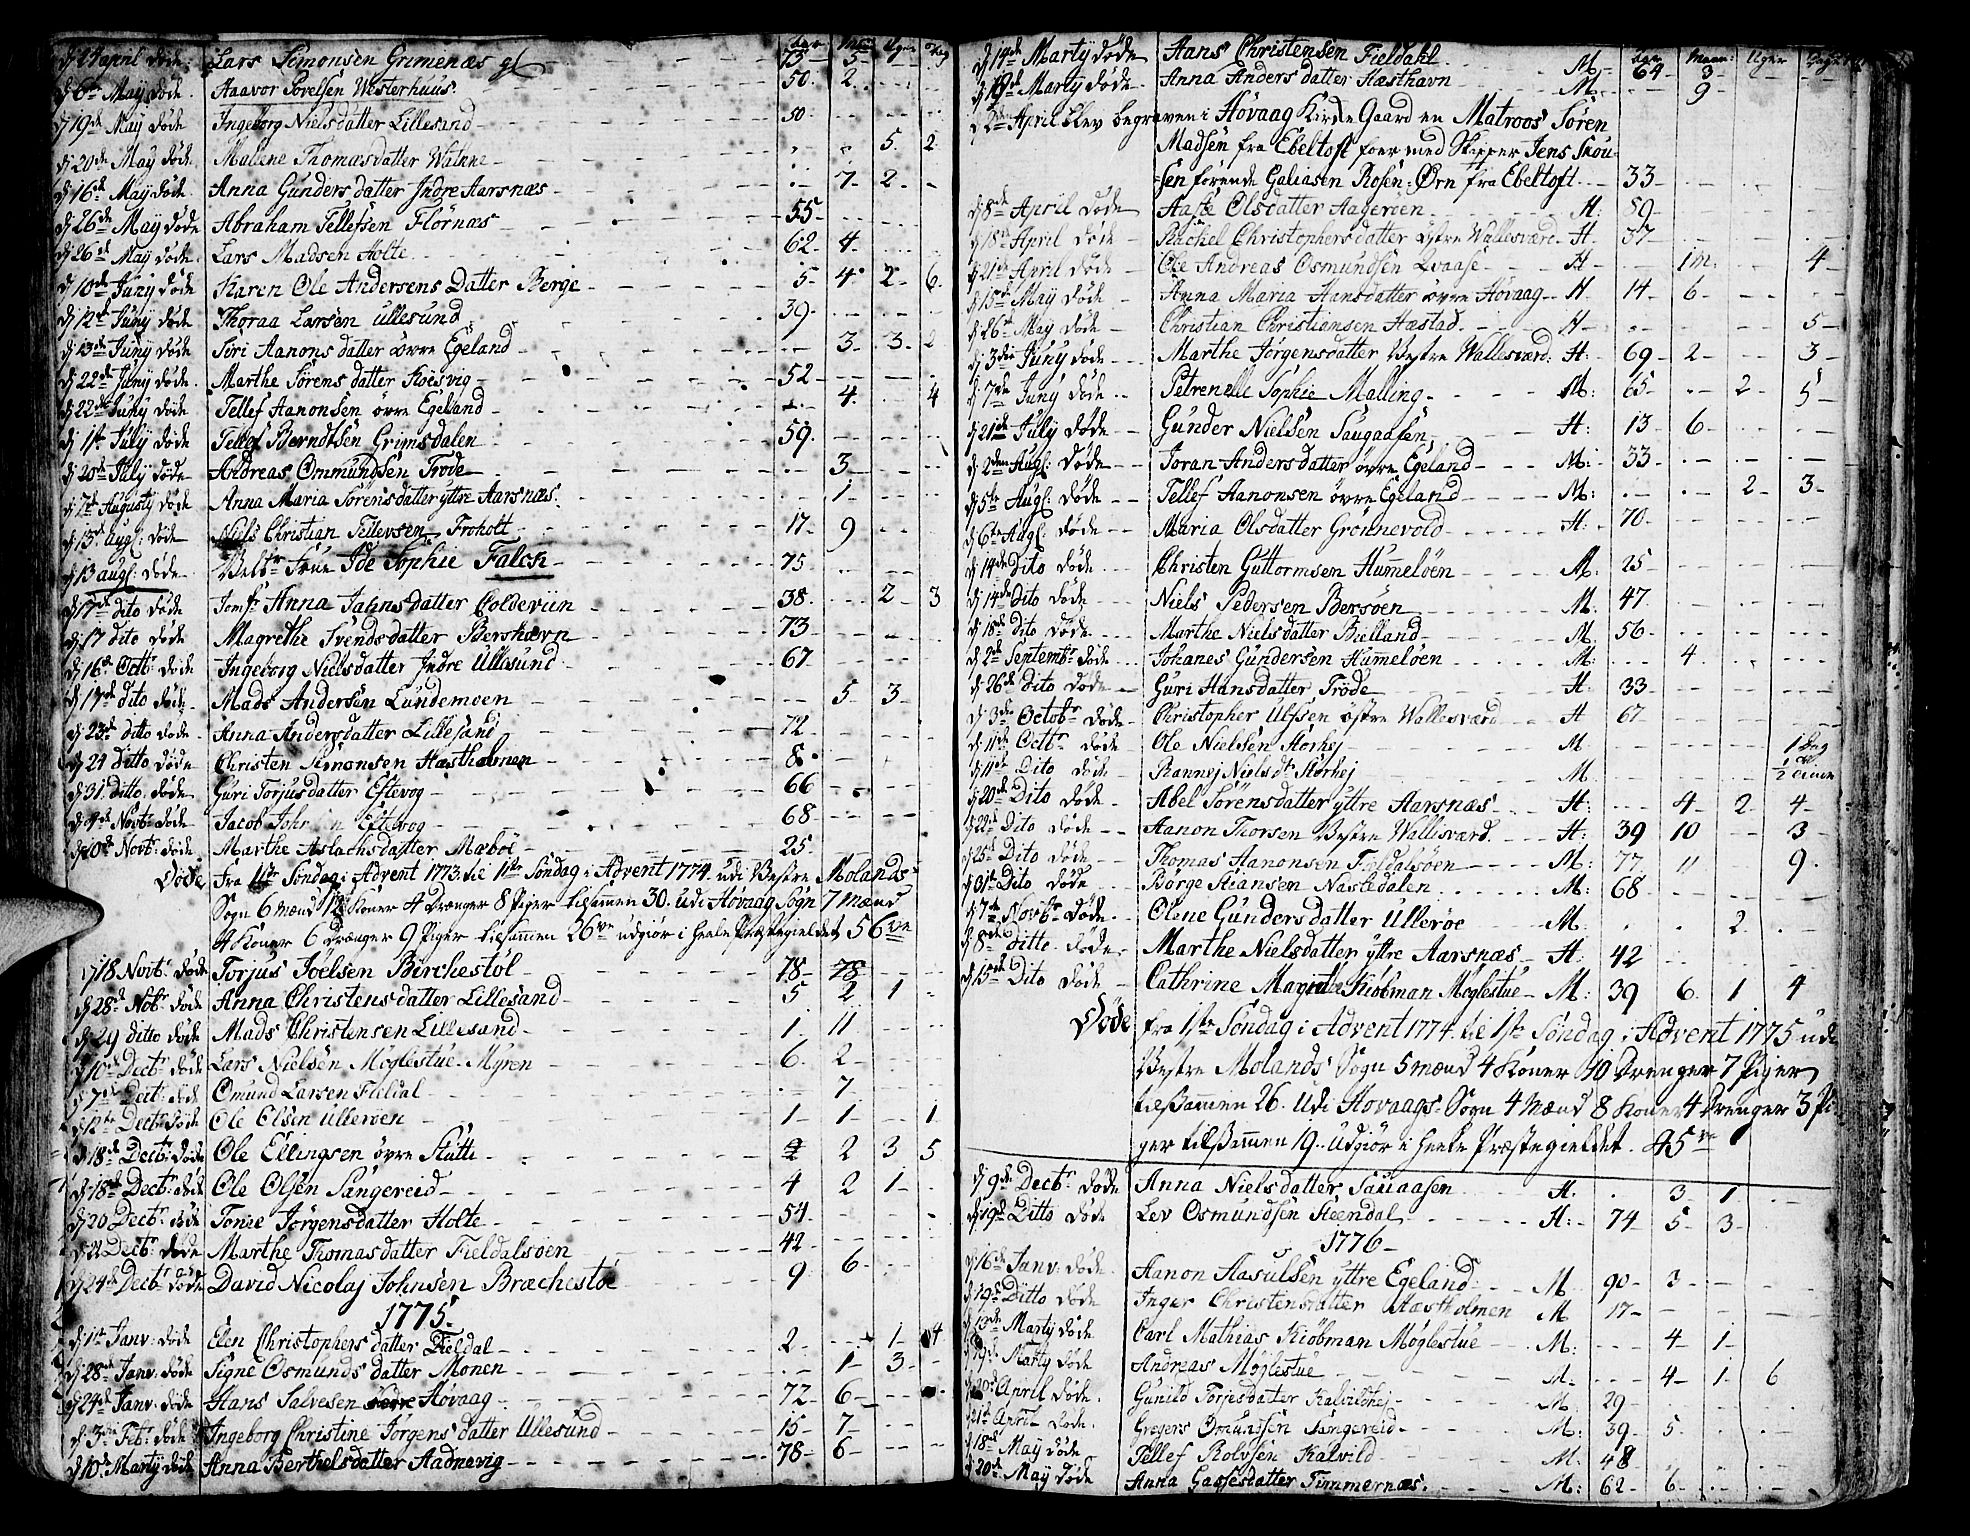 Aar Maan Uger Dag
d 24 april døde Lars Simonsen Grimenæs gl 73 - 5 - 1
d 6te May døde Aavor Povelsen Westerhuus 50 2
d 19de May døde Ingeborg Nielsdatter Lillesand 50
d 20de May døde Malene Thomasdatter Watnne 5 2
d 16de May døde Anna Gunders datter Indre Aarsnæs 7 2
d 26de May døde Abraham Tellefsen Flørnæs 55
d 26de May døde Lars Madsen Holte 62 4
d 10de Juny døde Karen Ole Andersens Datter Berge 5 4 2 6
d 12te Juny døde Thoraa Larsen ullesund 39
d 13de Juny døde Siri Aanons datter øvre Egeland 3 3 2
d 22de Juny døde Marthe Sørens datter Koesvig 52
d 22de Juny døde Tellef Aanonsen øvre Egeland 4 4
d 1ste July døde Tellef Berndtsen Grimsdalen 59
d 20de July døde Andreas Ommundsen Trøde 3
d 7de Augusty døde Anna Maria Sørensdatter yttre Aarsnæs 1
d 13de augs: døde Niels Christian Tellevsen Froholt 17 9
d 13 augs: døde Velb: Frue Ide Sophie Falck 75
d 17de dito døde Jomfr Anna Jahnsdatter Coldeviin 38 2 3
d 17 dito døde Magrethe Svendsdatter Bershavn 73
d 16de Octbr døde Ingeborg Nielsdatter Indre Ullesund 67
d 17de dito døde Mads Andersen Lundemoen 5 3
d 23de ditto døde Anna Andersdatter Lillesand 72
d 24 ditto døde Christen Simonsen Hæstholmen 8
d 31 ditto døde Guri Torjusdatter Eftevog 66
d 4de Novbr døde Jacob Eftevog 68
d 10de Novbr: døde Marthe Aslachsdatter Mæbøe 25
Døde Fra 1ste Søndag i Advent 1773 til 1ste Søndag i Advent 1774 udi Vestre Molands
Sogn 6 mænd 12 Koner 4 Drenger 8 Piger tilsammen 30. Udi Høvaag Sogn 7 Mænd
4 Koner 6 Drænger 9 Piger tilsammen 26ve udgiør i heele Præstegieldet 56ve
d 18 Novbr: døde Torjus Joelsen Birchestøl 78 78
d 28de Nobr: døde Anna Christensdatter Lillesand 5 2 1
d 29 ditto døde Mads Christensen Lillesand 1 11
d 10de Decbr: døde Lars Nielsen Møglestue Myren 6 2
d 7de Decbr: døde Omund Larsen Fieldal 7
d 12te Decbr: døde Ole Olsen ullerøen 1 1 1
d 18de Decbr: døde Ole Ellingsen øvre Slutte 2 2 3 5
d 18de Decbr: døde Ole Olsen Sangereid 4 2 1
d 20 Decbr: døde Tonie Jørgensdatter Holte 54
d 22 Decbr: døde Marthe Thomasdatter Fieldalsøen 42
d 24de Decbr: døde David Nicolaj Johnsen Bræchestøe 9 6
1775
d 1ste Janv: døde Elen Christophersdatter Fieldal 2 1 4
d 28de Janv: døde Signe Osmunds datter Monen 1 3
d 24de Janv: døde Hans Salvesen Høvaag 72 6
d 3die Febr: døde Ingeborg Christine Jørgens datter Ullesund 15 7
d 10de Marty døde Anna Berthelsdatter Aadnevig 78 6
Aar Maan: Uger Dage
d 14de Marty døde Hans Christensen Fieldahl M 64 3
d 19de Marty døde Anna Anders datter Hæsthavn M 9
d 2de April blev begraven i Høvaag Kirke Gaard en Matroos Søren
Madsen fra Ebeltoft foer med Skipper Jens Skou
sen førende Galiasen Rosen-Ørn fra Ebeltoft 33
d 8de April døde Aaste Olsdatter Aagerøen H: 59
d 18de April døde Rachel Christophersdatter østre Wallesværd H 37
d 21de April døde Ole Andreas Osmundsen Qvaase H 1m. 4
d 15de May døde Anna Maria Hansdatter øvre Høvaag H. 14 6
d 26de May døde Christian Christiansen Hæstad H 5
d 3die Juny døde Marthe Jørgensdatter Vestre Wallesværd H: 69 2 3
d 7de Juny døde Petrenelle Sophie Malling M: 65 2 5
d 21de July døde Gunder Nielsen Saugaasen H: 13 6
d 2den Augs: døde Joran Andersdatter øvre Egeland M: 33
d 5te Augs: døde Tellef Aanonsen øvre Egeland M: 2 3
d 6te Augs: døde Maria Olsdatter Grønnevold H: 70
d 14de Dito døde Christen Guttormsen Hummeløen M: 25
d 14de Dito døde Niels Pedersen Bersøen M: 47
d 18de Dito døde Marthe Nielsdatter Bielland M: 56
d 2de Septembr døde Johanes Gundersen Hummeløen M: 4
d 26de Dito døde Guri Hansdatter Trøde H 33
d 3die Octobr: døde Christopher Ulfsen østre Wallesværd H 67
d 11de Octbr: døde Ole Nielsen Storhej M 1 Dag
d 11de Dito døde Rannej Nielsdtr Storhej M 1/2 time
d 20de Dito døde Abel Sørensdatter yttre Aarsnæs H: 4 2 4
d 22de Dito døde Aanon Thorsen Vestre Wallesværd H: 39 10 3
d 25de Dito døde Thomas Aanonsen Fieldalsøen M: 77 11 9
d 31te Dito døde Børge Stiansen Nastedalen M: 68
d 7de Novbr: døde Olene Gundersdatter Ullerøe M: 2
d 8de Ditto døde Marthe Nielsdatter yttre Aarsnæs H: 42
d 15de Dito døde Cathrine Magrethe Kiøbman Møglestue M: 39 6 1 4
Døde fra 1ste Søndag i Advent 1774 til 1ste Søndag i Advent 1775 udi
Vestre Molands Sogn 5 mænd 4 Koner 10 Drenger 7 Piger
tilsammen 26. Udi Høvaags-Sogn 4 Mænd 8 Koner 4 Drenger 3 Pi-
ger tilsammen 19. Udgiør i heele Præstegieldet. 45ve
d 9de Decbr: døde Anna Nielsdatter Sauaasen H. 3 1
d 19de Ditto døde Lev Osmundsen Steendal H: 74 5 3
1776
d 16de Janv: døde Aanon Aasulsen yttre Egeland M 90 3
d 19de Ditto døde Inger Christensdatter Hæstholmen M 17
d 13de Marty døde Carl Mathias Kiøbman Møglestue M: 4 1
d 19de Marty døde Andreas Møglestue M: 4 1 6
d 20de April døde Gunild Torjesdatter Kalvildhej M: 29
d 21de April døde Gregers Omundsen Sangereid M: 39 5
d 18de May døde Tellef Rolvsen Kalvild M: 48
d 20de May døde Anna Gassesdatter Timmernæs M: 62 6